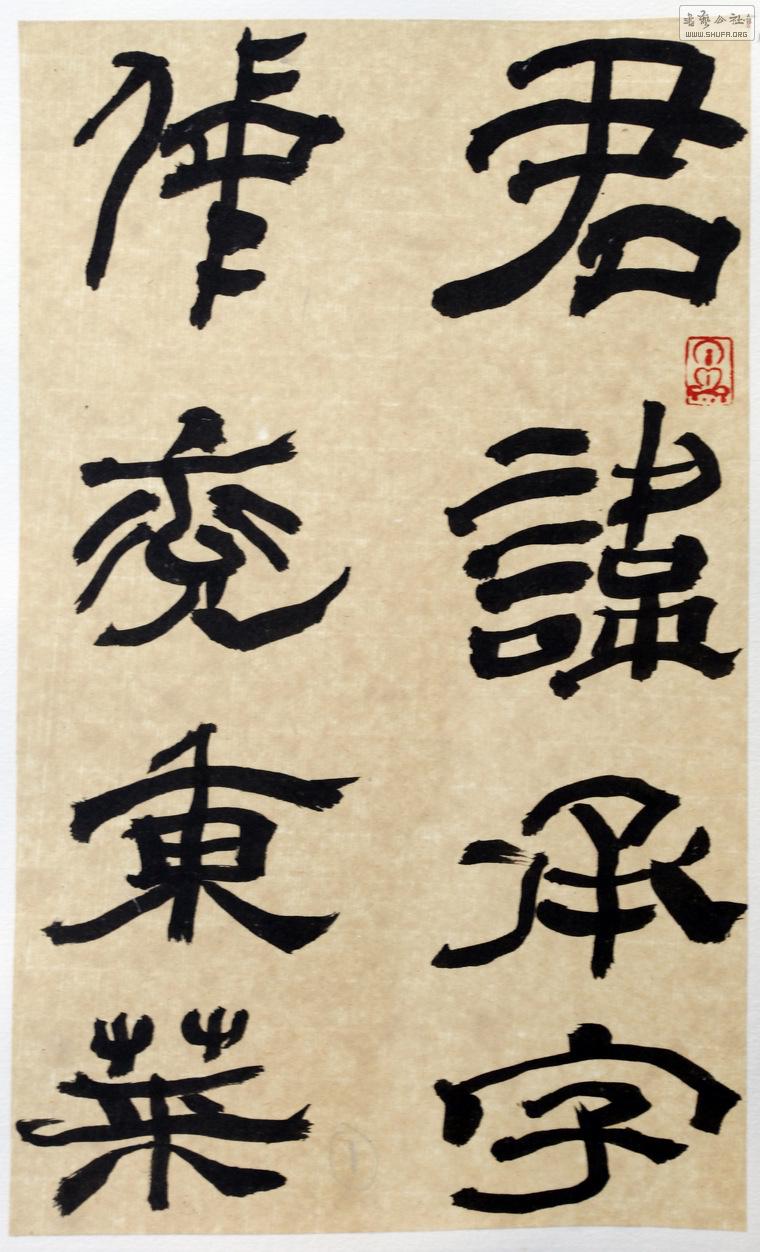 君諱承字
仲兗東萊
書藝公社
WWW.SHUFA.ORG